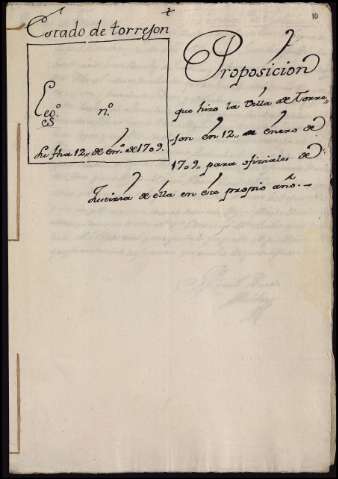 10
Estado de torrejon
Leg.º n.º
Su ftha 12,, de en.º de 1709.
Proposicion
que hizo la Villa de Torre-
jon en 12,, de enero de
1709. para oficiales de
Justicia de ella en este propio año.